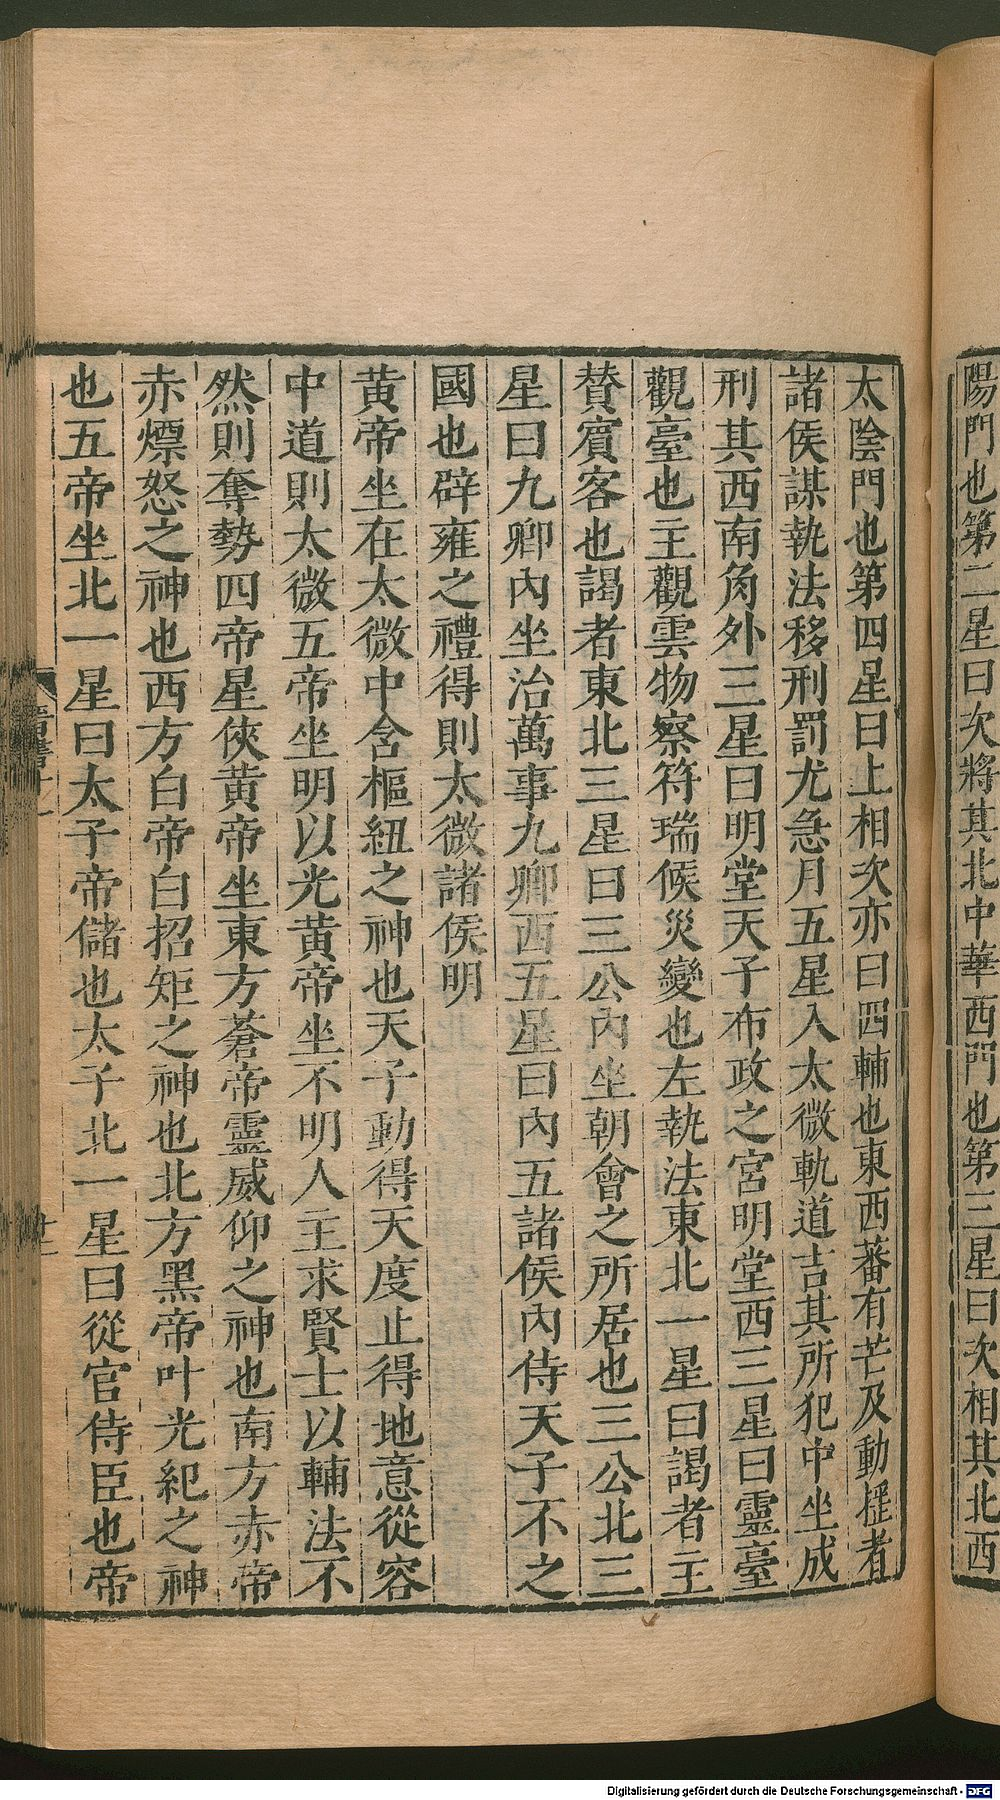 陽門也第二星曰次將其北中華西門也第三星曰次相其北西
太陰門也第四星曰上相次亦曰四輔也東西蕃有芒及動搖者
諸侯謀執法移刑罰尤急月五星入太微軌道吉其所犯中坐成
刑其西南角外三星曰明堂天子布政之宮明堂西三星曰靈臺
觀臺也主觀雲物察符瑞候災變也左執法東北一星曰謁者主
賛賓客也謁者東北三星曰三公內坐朝會之所居也三公北三
星曰九卿內坐治萬事九卿西五星曰內五諸侯內侍天子不之
國也辟雍之禮得則太微諸侯明
黃帝坐在太微中含樞紐之神也天子動得天度止得地意從容
中道則太微五帝坐明以光黃帝坐不明人主求賢士以輔法不
然則奪勢四帝星俠黃帝坐東方蒼帝靈威仰之神也南方赤帝
赤熛怒之神也西方白帝白招矩之神也北方黑帝叶光紀之神
也五帝坐北一星曰太子帝儲也太子北一星曰從官侍臣也帝
晉書十一
十二
Digitalisierung gefördert durch die Deutsche Forschungsgemeinschaft - DFG